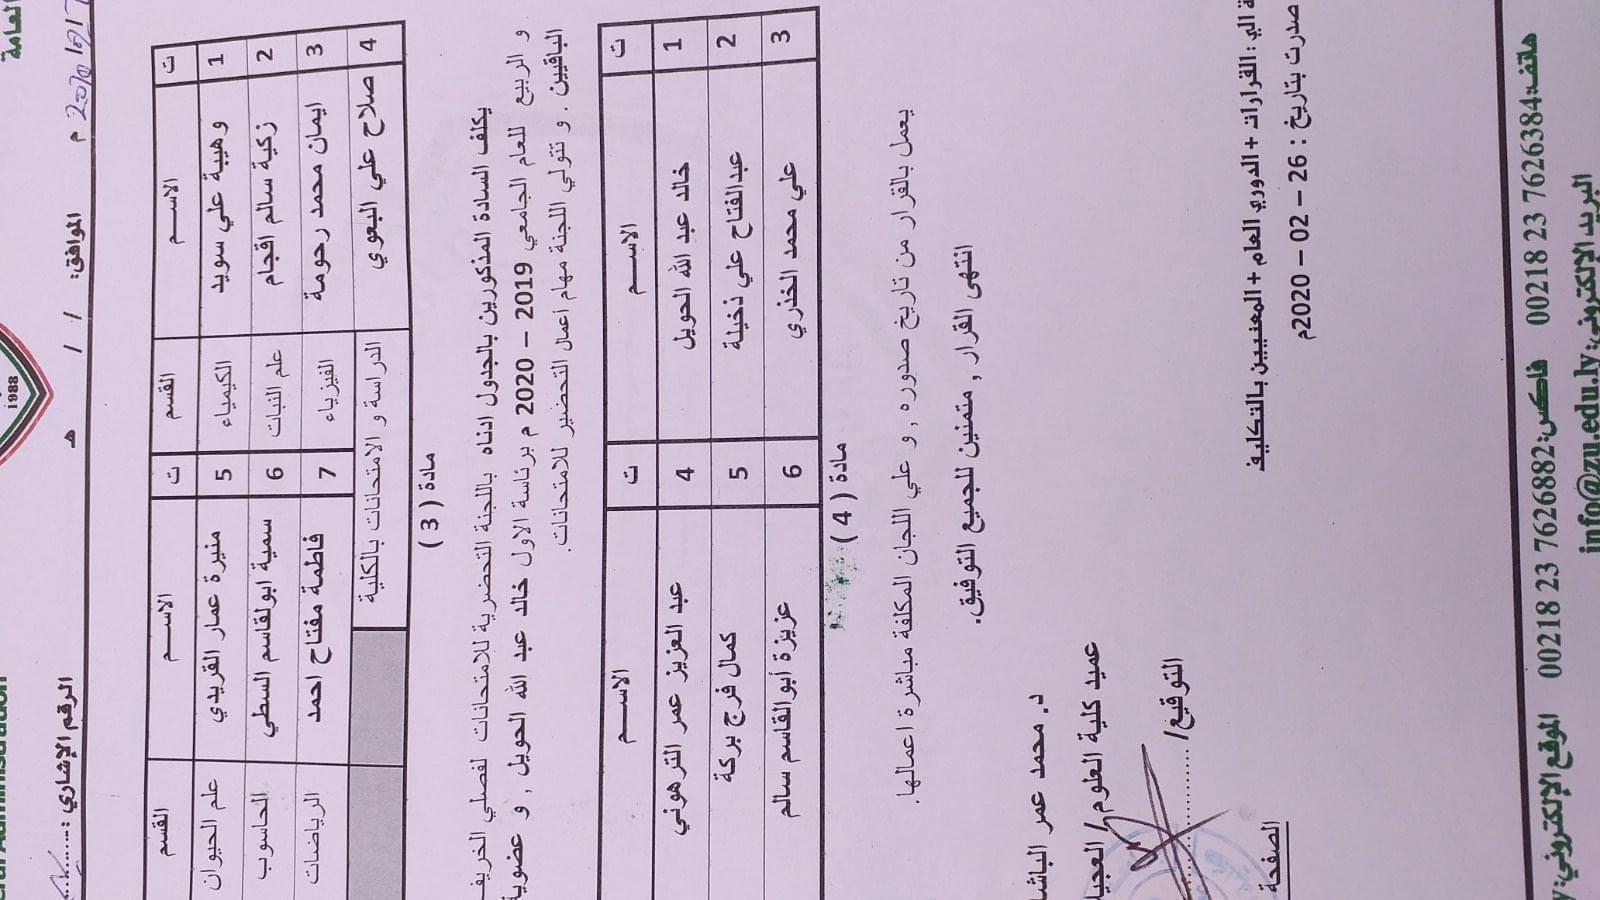 العامة
1988
الرقم الإشاري : هـ الموافق: / / م
ت الاســم القسم ت الاســم القسم
1 وهيبة علي سويد الكيمياء 5 منيرة عمار القريدي علم الحيوان
2 زكية سالم اقجام علم النبات 6 سمية ابولقاسم السطي الحاسوب
3 ايمان محمد رحومة الفيزياء 7 فاطمة مفتاح احمد الرياضات
4 صلاح علي البعوي الدراسة و الامتحانات بالكلية
مادة ( 3 )
يكلف السادة المذكورين بالجدول ادناه باللجنة التحضرية للامتحانات لفصلي الخريف
و الربيع للعام الجامعي 2019 – 2020 م برئاسة الاول خالد عبد الله الحويل , و عضوية
الباقيين . و تتولي اللجنة مهام اعمال التحضير للامتحانات.
ت الاســم ت الاســم
1 خالد عبد الله الحويل 4 عبد العزيز عمر الترهوني
2 عبدالفتاح علي دخيلة 5 كمال فرج بركة
3 علي محمد الخذري 6 عزيزة أبوالقاسم سالم
مادة ( 4 )
يعمل بالقرار من تاريخ صدوره , و علي اللجان المكلفة مباشرة اعمالها.
انتهى القرار , متمنين للجميع التوفيق.
د. محمد عمر الباشا
عميد كلية العلوم/ العجيلا
التوقيع/
الصفحة
ة الي : القرارات + الدوري العام + المعنيين بالتكليف
صدرت بتاريخ : 26 – 02 – 2020م
هاتف:00218 23 7626384 فاكس:00218 23 7626882 الموقع الإلكتروني:
البريد الإلكتروني:info@zu.edu.ly